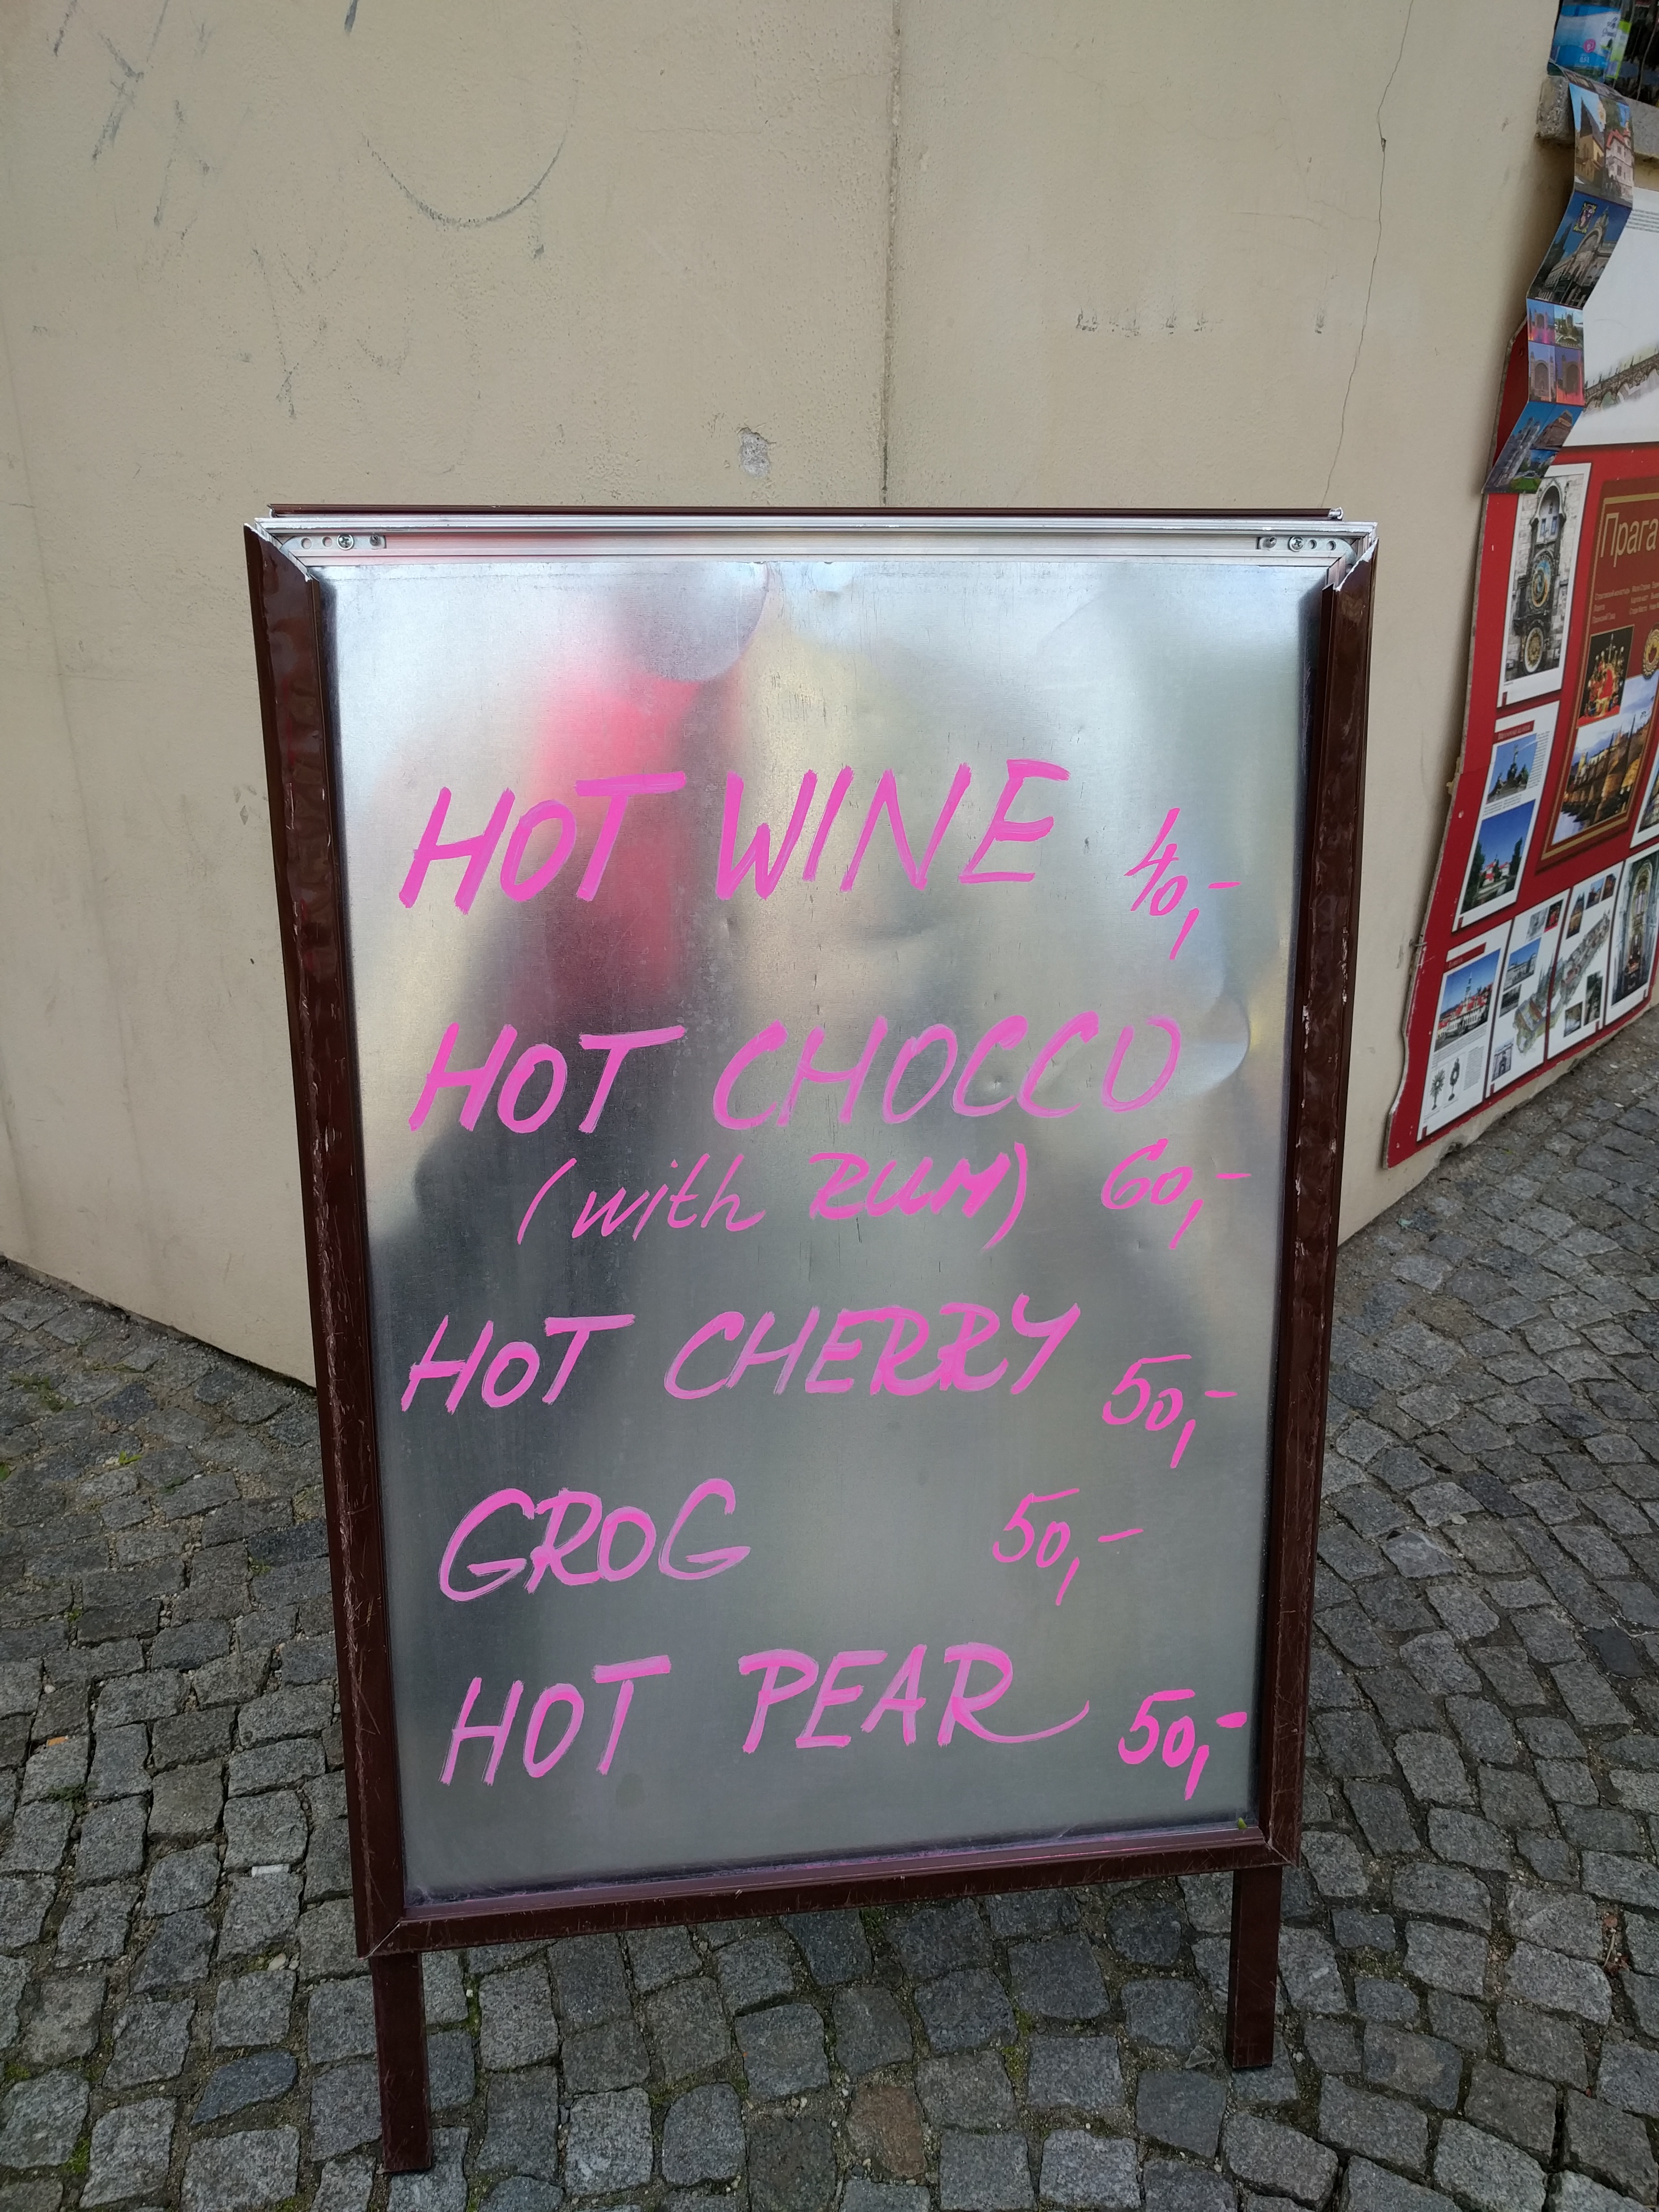 HOT WINE 40,-
HOT CHOCCO
(with RUM) 60,-
HOT CHERRY 50,-
GROG 50,-
HOT PEAR 50,-
Прага